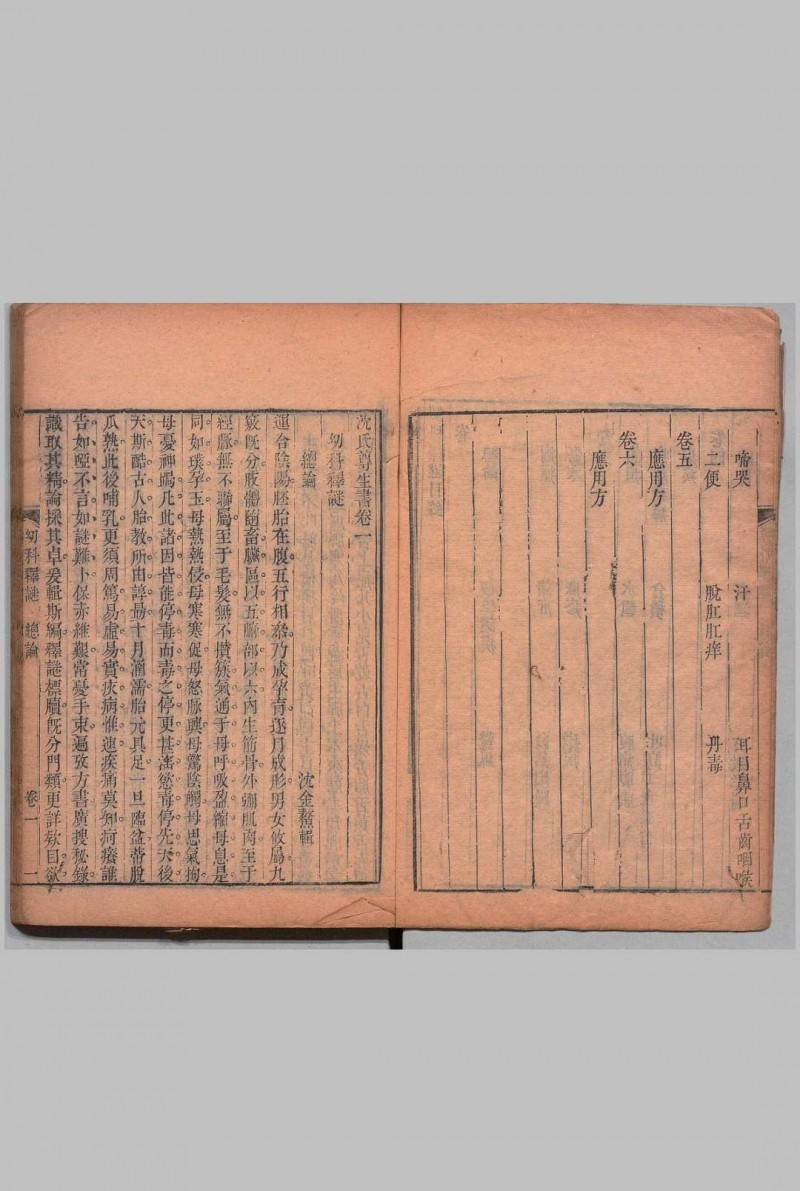 啼哭 汗 耳目鼻口舌齒咽喉
二便 脫肛肛痒 丹毒
卷五
應用方
卷六
應用方
沈氏尊生書卷一
幼科釋謎 沈金鰲輯
總論
運合陰陽。胚胎在腹。五行相叅。乃成孕育。逐月成形。男女攸屬。九
竅既分。肢體隨畜。臟區以五。腑部以六。內生筋骨。外彌肌肉。至于
經脉。無不聯屬。至于毛髮。無不攅簇。氣通于母。呼吸盈縮。母息是
同。如璞孕玉。母熱熱侵。母寒寒促。母怒脉興。母驚陰觸。母思氣拘。
母憂神局。凡此諸因。皆能停毒。而毒之停。更甚滛慾。毒停先天。後
天斯酷。古人胎教。所由諄朂。十月涵濡。胎元具足。一旦臨盆。蒂脫
瓜熟。此後哺乳。更須周篤。易虛易實。疾病惟速。疾痛莫知。疴癢誰
告。如啞不言。如謎難卜。保赤維艱。常憂手束。遍攷方書。廣搜秘錄。
識取其精。論採其卓。爰輯斯編。釋謎標牘。既分門類。更詳欸目。欲
幼科釋謎 總論 卷一 一